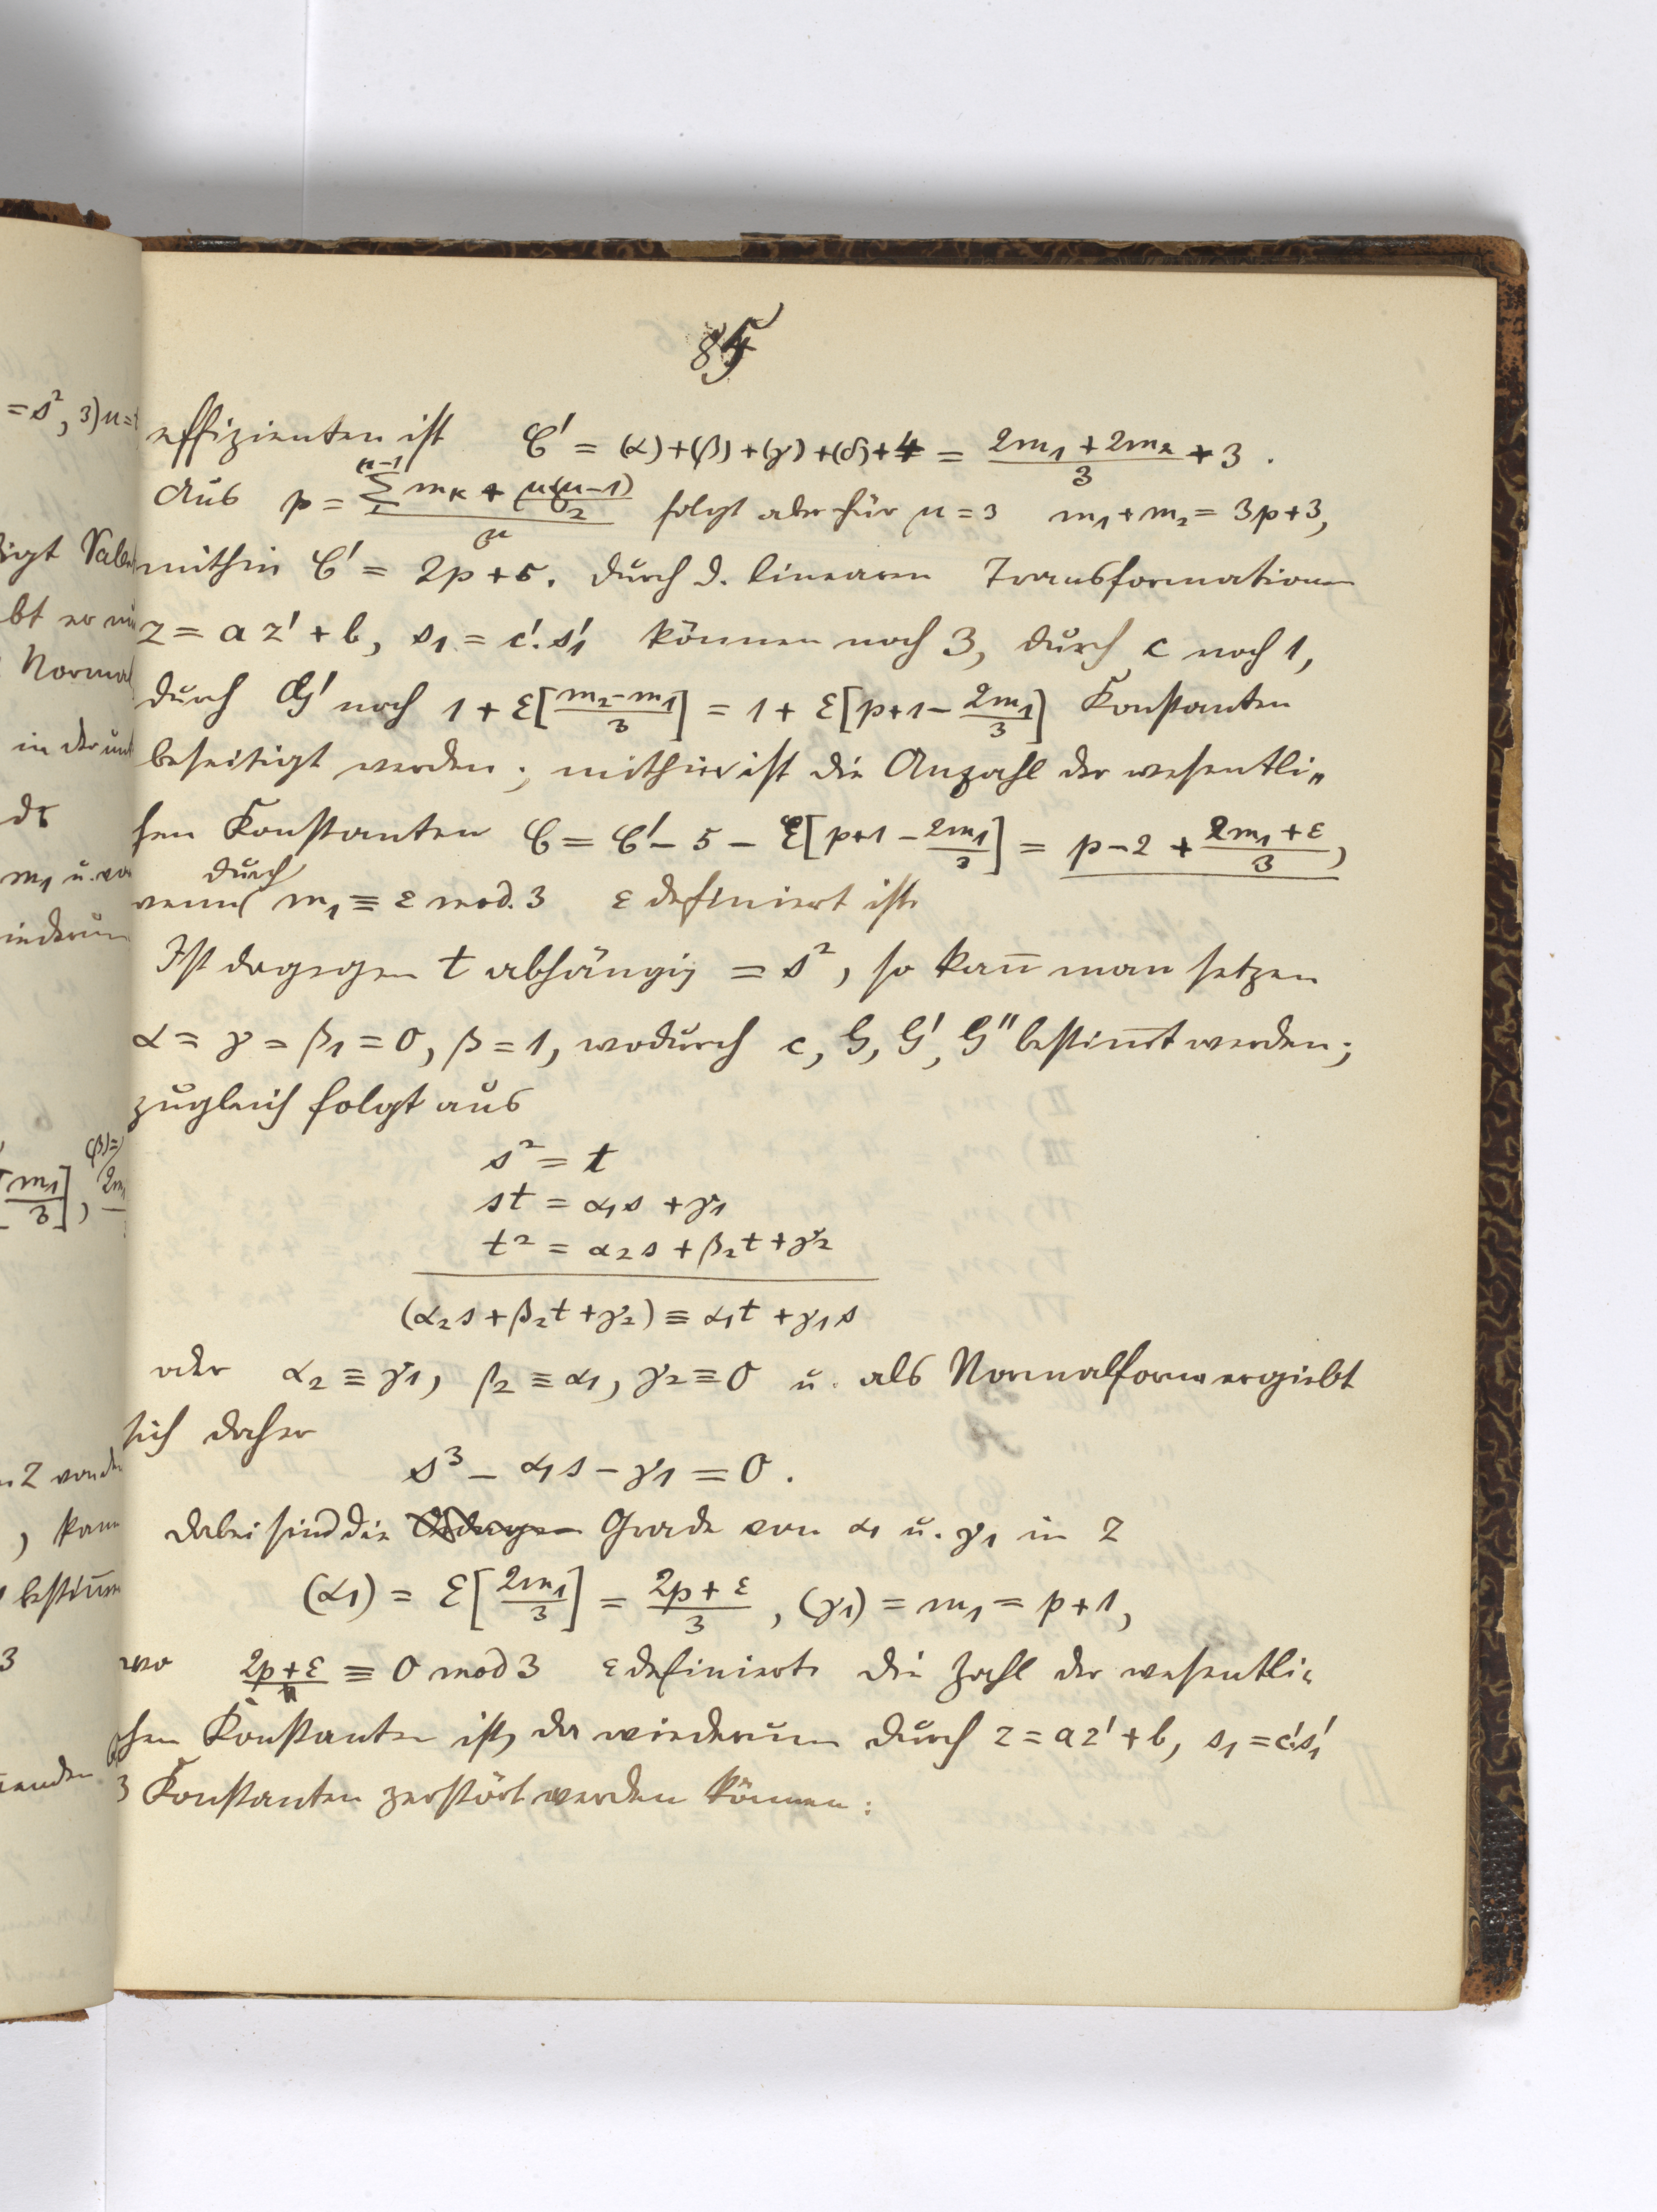 85
effizienten ist C' = (α)+(β)+(γ)+(δ)+4 = (2m₁+2m₂)/3 + 3.
Aus p = (Σ₁ⁿ⁻¹ mₖ + n(n-1)/2)/n folgt aber für n = 3 m₁+m₂ = 3p+3,
mithin C' = 2p+5. Durch d. linearen Transformationen
z = az'+b, s₁ = c'.s₁' können noch 3, durch c noch 1,
durch G' noch 1 + ε[(m₂-m₁)/3] = 1 + ε[p+1-2m₁/3] Konstanten
beseitigt werden; mithin ist die Anzahl der wesentli„
chen Konstanten C = C' - 5 - ε[p+1 - 2m₁/3] = p-2 + (2m₁+ε)/3,
wenn durch m₁ ≡ ε mod. 3 ε definiert ist.
Ist dagegen t abhängig = s², so kan̄ man setzen
α = γ = β₁ = 0, β = 1, wodurch c, G, G', G'' bestim̄t werden;
zugleich folgt aus
s² = t
st = α₁s + γ₁
t² = α₂s + β₂t + γ₂
(α₂s + β₂t + γ₂) ≡ α₁t + γ₁s
oder α₂ ≡ γ₁, β₂ ≡ α₁, γ₂ ≡ 0 u. als Normalform ergiebt
sich daher
s³ - α₁s - γ₁ = 0.
Dabei sind die Grade von α₁ u. γ₁ in z
(α₁) = ε[2m₁/3] = (2p+ε)/3, (γ₁) = m₁ = p+1,
wo 2p+ε ≡ 0 mod 3 ε definiert. Die Zahl der wesentli„
chen Konstanten ist, da wiederum durch z = az'+b, s₁ = c's₁'
3 Konstanten zerstört werden können:
= s², 3) u =
bt er
Normal
in der
m₁ u.
[m₁/3], (β) =
z von
, kann
3